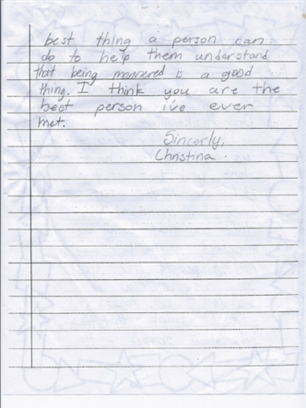 best thing a person can
do to help them understand
that being mannered is a good
thing. I think you are the
best person i've ever
met.
Sincerly,
Christina.